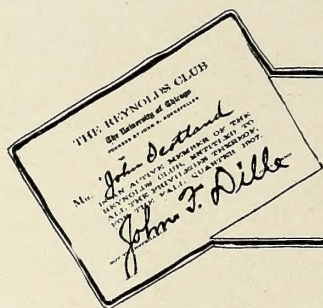 THE REYNOLDS CLUB
The University of Chicago
FOUNDED BY JOHN D. ROCKEFELLER
Mr. John Scotland
IS AN ACTIVE MEMBER OF THE
REYNOLDS CLUB, ENTITLED TO
ALL THE PRIVILEGES THEREOF,
FOR THE FALL QUARTER 1907.
John F. Dille
NOT